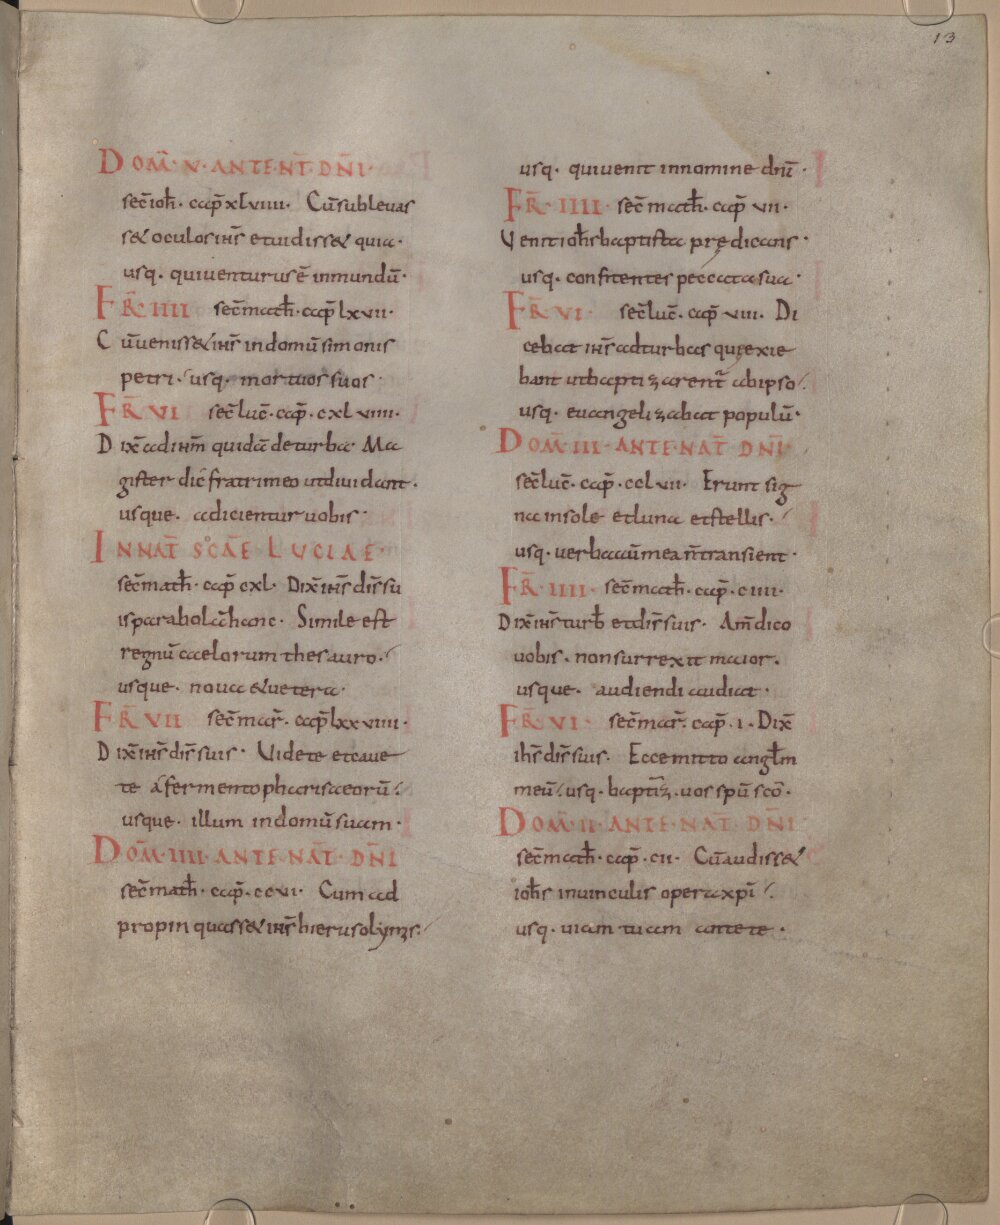 13
DOM̄·V·ANTE·NT̄·DÑI·
sec̄ ioh̄·cap̄ xlviiii· Cū subleuas
s& oculos ihs̄ et uidiss& quia·
usq· qui uenturus ē in mundū·
FR̄·IIII sec̄ math̄·cap̄ lxvii·
Cū ueniss& ihs̄ in domū simonis
petri· usq· mortuos suos·
FR̄ VI sec̄ luc̄·cap̄·cxlviiii·
Dix̄ ad ihm̄ quidā de turba· Ma
gister dic̄ fratri meo ut diuidant·
usque· adicientur uobis·
IN NAT̄ SCĀE LUCIAE·
sec̄ math̄·cap̄ cxl· Dix̄ ihs̄ dis̄ su
is parabolā hanc· Simile est
regnū caelorum thesauro·
usque· noua & uetera·
FR̄ VII sec̄ mar̄·cap̄ lxxviiii·
Dix̄ ihs̄ dis̄ suis· Videte et caue
te a fermento pharisaeorū·
usque· illum in domū suam·
DOM̄·IIII·ANTE NAT̄·DÑI
sec̄ math̄·cap̄·ccvi· Cum ad
propinquass& ihs̄ hierusolymis·
usq· qui uenit in nomine dn̄i·
FR̄·IIII· sec̄ math̄·cap̄ vii·
Venit ioh̄s baptista prędicans·
usq· confitentes peccata sua·
FR̄ VI· sec̄ luc̄·cap̄ viii· Di
cebat ihs̄ ad turbas quę exie
bant ut baptizarent̄ ab ipso·
usq· euangelizabat populū·
DOM̄ III·ANTE·NAT̄ DÑI·
sec̄ luc̄·cap̄·cclvii· Erunt sig
na in sole et luna et stellis·
usq· uerba aūt mea n̄ transient·
FR̄·IIII· sec̄ math̄·cap̄·ciiii·
Dix̄ ihs̄ turb̄ et dis̄ suis· Am̄ dico
uobis· non surrexit maior·
usque· audiendi audiat·
FR̄·VI· sec̄ mar̄·cap̄·i·Dix̄
ihs̄ dis̄ suis· Ecce mitto angl̄m
meū· usq· baptiz̄·uos spū scō·
DOM̄·II·ANTE·NAT̄·DÑI
sec̄ math̄·cap̄·cii· Cū audiss&
ioh̄s in uinculis opera xpī·
usq· uiam tuam ante te·